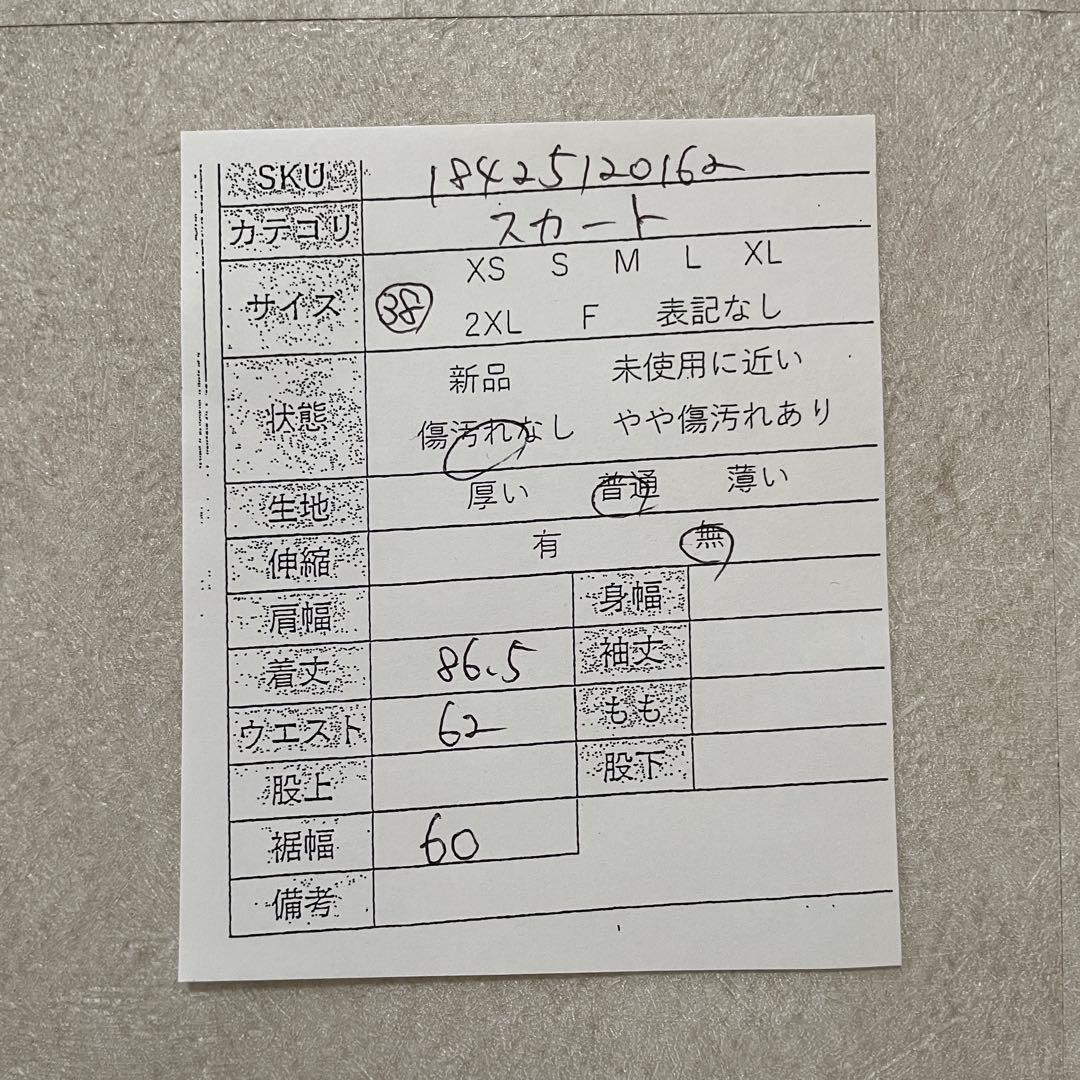 SKU 18425120162
カテゴリ スカート
XS S M L XL
サイズ 38
2XL F 表記なし
新品 未使用に近い
状態
傷汚れなし やや傷汚れあり
生地 厚い 普通 薄い
伸縮 有 無
肩幅 身幅
着丈 86.5 袖丈
ウエスト 62 もも
股上 股下
裾幅 60
備考